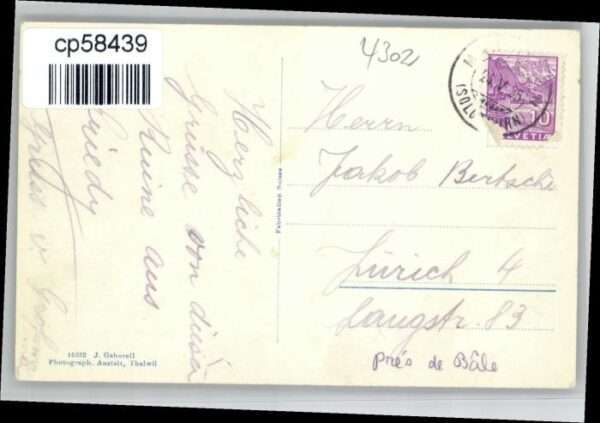 cp58439
4302
Herzliche
Grüsse von dieser
Ruine aus
Friedy
Gruss v.
Fabrication Suisse
Herrn
Jakob Bertschi
Zürich 4
Langstr. 83
près de Bâle
10
HELVETIA
(SOLOTHURN)
J. Gaberell
Photograph. Anstalt, Thalwil